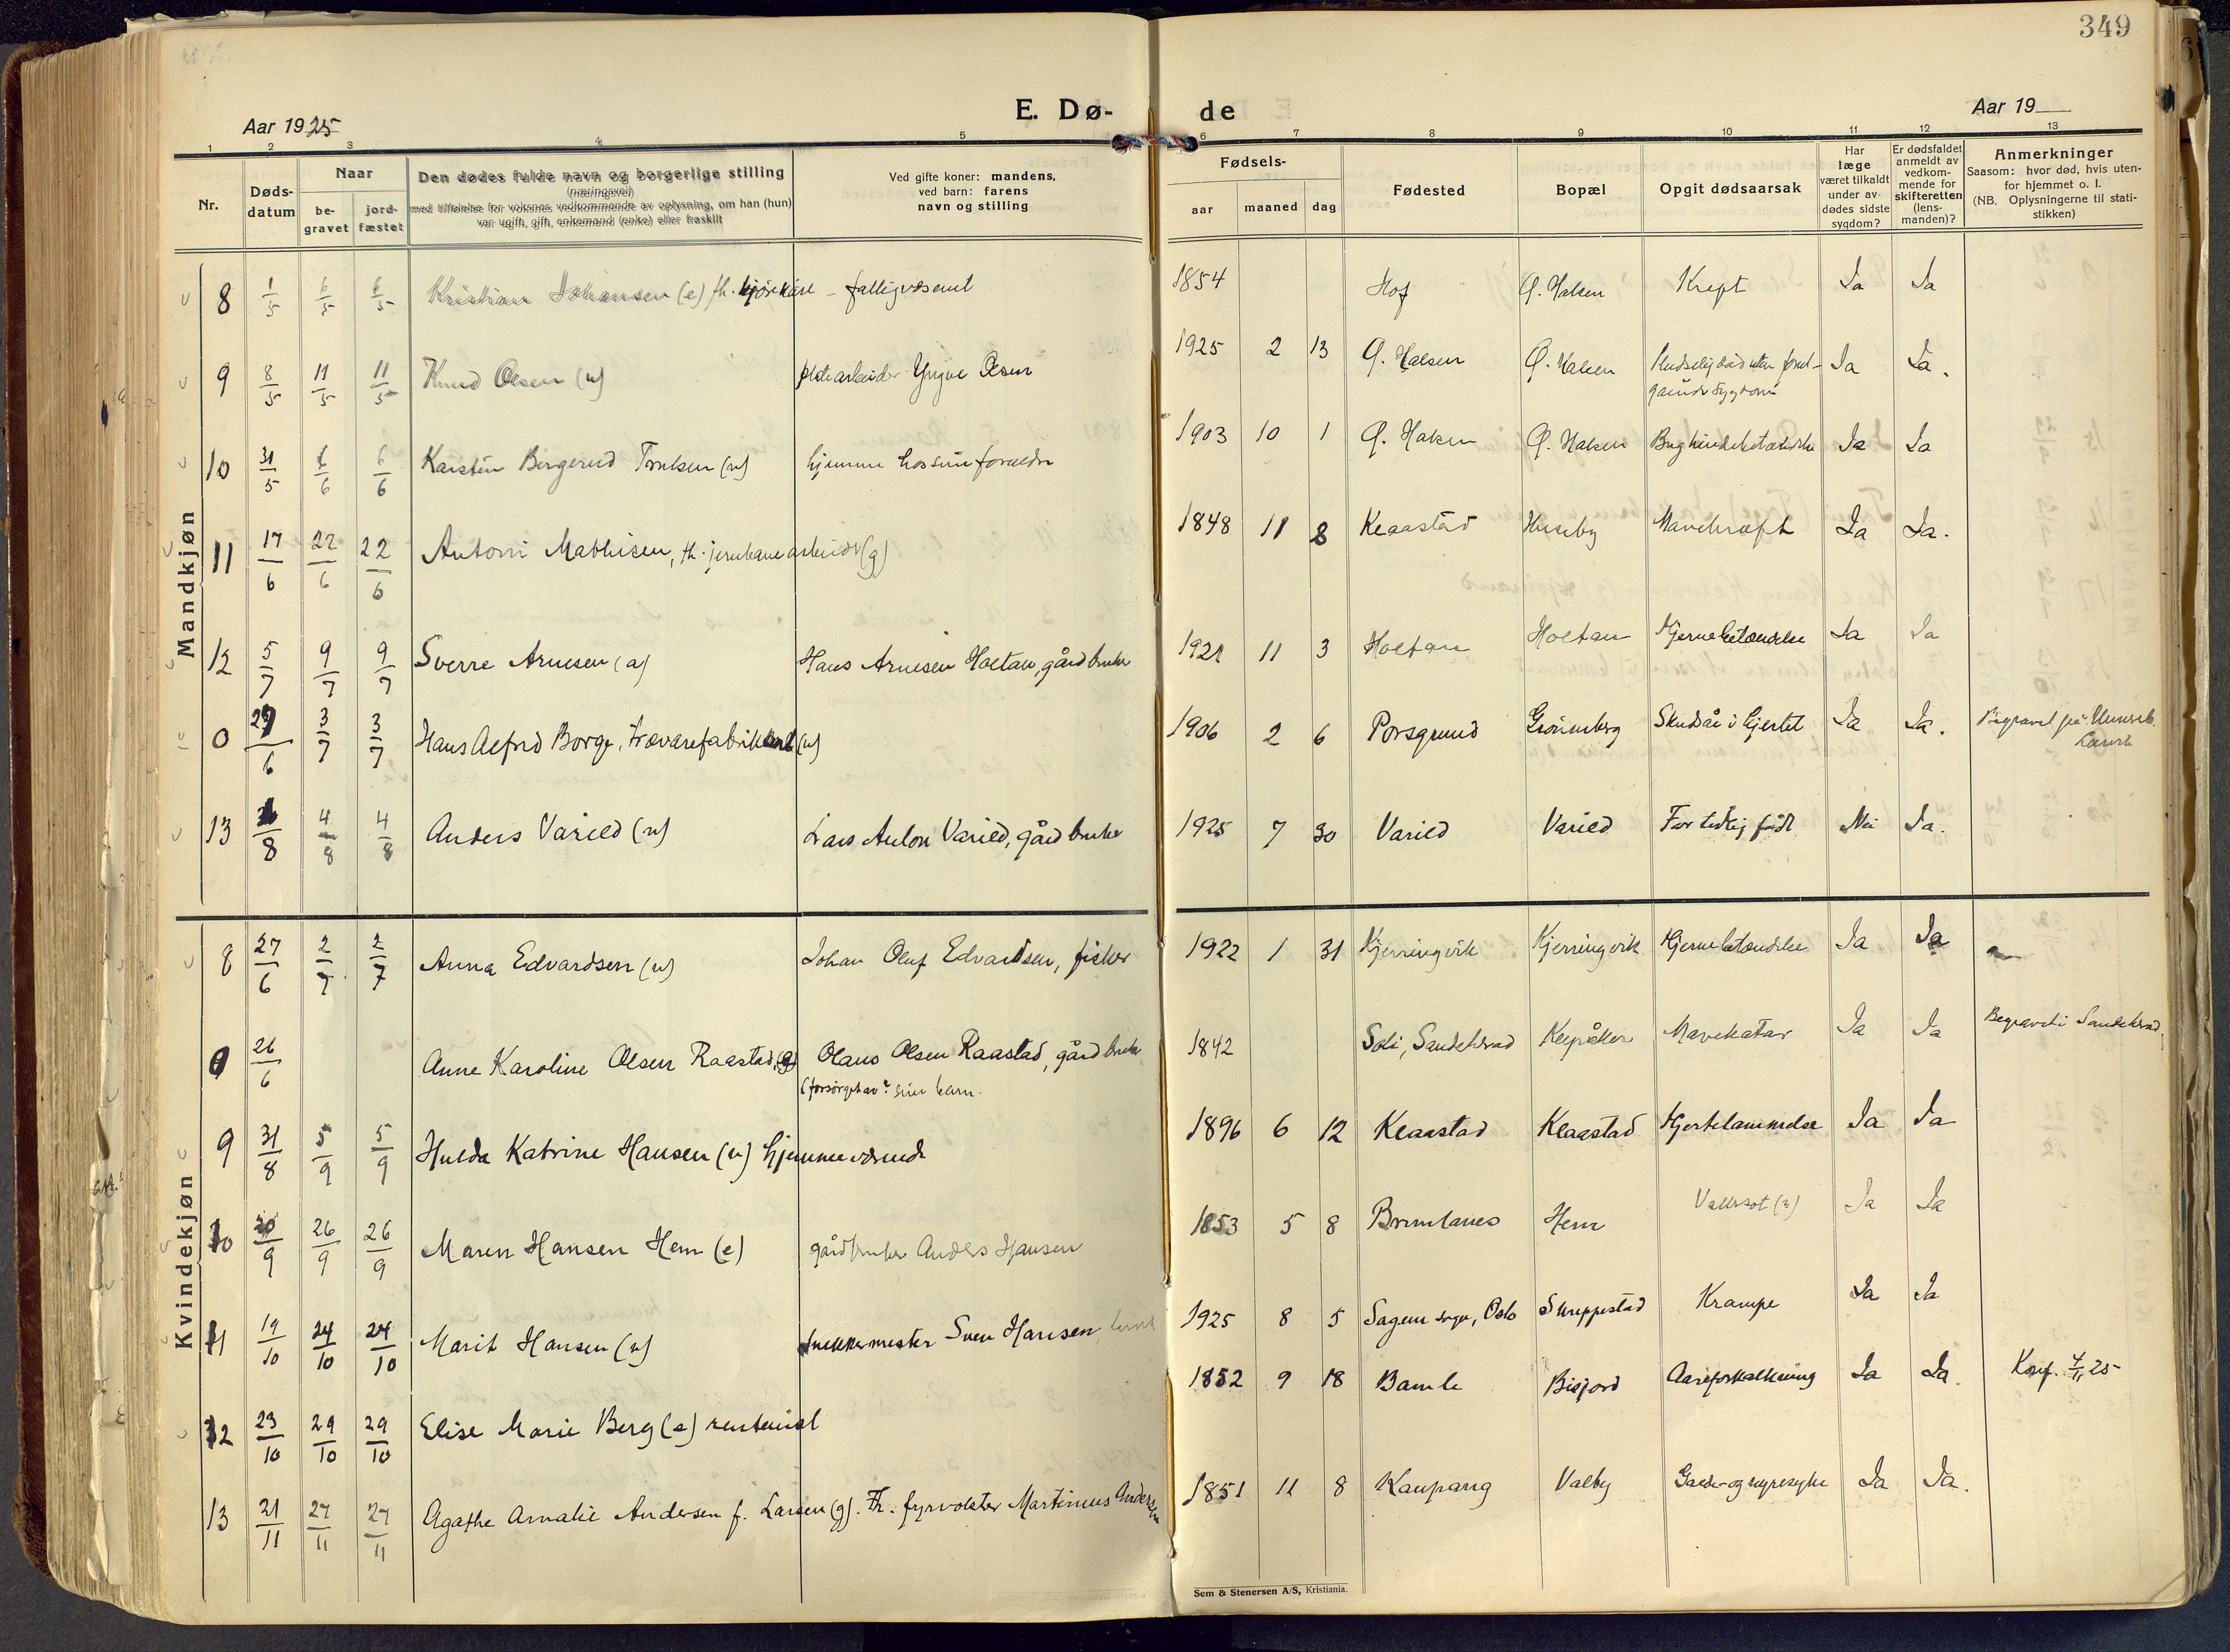 349
Aar 1925
E. Dø-
de
Aar 19
1 2 3 4 5 6 7 8 9 10 11 12 13
Nr.
Døds-
datum
Naar
be-
gravet
jord-
fæstet
Den dødes fulde navn og borgerlige stilling
(næringsvei)
med tilføielse for voksnes vedkommende av oplysning, om han (hun)
var ugift, gift, enkemand (enke) eller fraskilt
Ved gifte koner: mandens,
ved barn: farens
navn og stilling
Fødsels-
aar maaned dag
Fødested
Bopæl
Opgit dødsaarsak
Har
læge
været tilkaldt
under av-
dødes sidste
sygdom?
Er dødsfaldet
anmeldt av
vedkom-
mende for
skifteretten
(lens-
manden)?
Anmerkninger
Saasom: hvor død, hvis uten-
for hjemmet o. l.
(NB. Oplysningerne til stati-
stikken)
Mandkjøn
8 1/5 6/5 6/5 Kristian Johansen (e) fh. kjørekarl - fattigvesenet 1854 Hof Ø. Halsen Kreft Ja Ja
9 8/5 11/5 11/5 Knud Olsen (u) Yngve Olsen 1925 2 13 Ø. Halsen Ø. Halsen Pludselig død uten fored-
gaaende sygdom Ja Ja.
10 31/5 6/6 6/6 Karsten Bergerud Trulsen (u) hjemme hos sine foreldre 1903 10 1 Ø. Halsen Ø. Halsen Bughindebetændelse Ja Ja
11 17/6 22/6 22/6 Antoni Mathisen, fh. jernbanearbeider (g) 1848 11 8 Klaastad Huseby Mavekræft Ja Ja.
12 5/7 9/7 9/7 Sverre Arnesen (u) Hans Arnesen Holtan, gårdbruker 1921 11 3 Holtan Holtan Hjernebetændelse Ja Ja
0 27/6 3/7 3/7 Hans Alfred Borge, trævarefabrikant (u) 1906 2 6 Porsgrund Grønneberg Skudsår i hjertet Ja Ja. Begravet på
Larvik
13 4/8 4/8 Anders Varild (u) Lars Anton Varild, gårdbruker 1925 7 30 Varild Varild For tidlig født Nei Ja.
Kvindekjøn
8 27/6 2/7 2/7 Anna Edvardsen (u) Johan Oluf Edvardsen, fisker 1922 1 31 Kjerringvik Kjerringvik Hjernebetændelse Ja Ja
0 26/6 Anne Karoline Olsen Raastad, (g) Olaus Olsen Raastad, gårdbruker
(forsørget av sine barn. 1842 Soli, Sandeherad Klepåker Mavekatar Ja Ja Begravet i Sandeherad.
9 31/8 5/9 5/9 Hulda Katrine Hansen (u) hjemmeværende 1896 6 12 Klaastad Klaastad Hjertelammelse Ja Ja
10 20/9 26/9 26/9 Maren Hansen Hem (e) gårdbruker Anders Hansen 1853 5 8 Brunlanes Hem Vattersot (?) Ja Ja
11 19/10 24/10 24/10 Marit Hansen (u) snekkermester Sven Hansen, 1925 8 5 Sagene sogn, Oslo Skreppestad Krampe Ja Ja
12 23/10 29/10 29/10 Elise Marie Berg (e) rentenist 1852 9 18 Bamle Bisjord Aareforkalkning Ja Ja. Konf. 4/11 25
13 21/11 27/11 27/11 Agathe Amalie Andersen f. Larsen (g). Fh. fyrvokter Martinus Andersen 1851 11 8 Kaupang Valby Galde- og nyresyke Ja Ja.
Sem & Stenersen A/S, Kristiania.